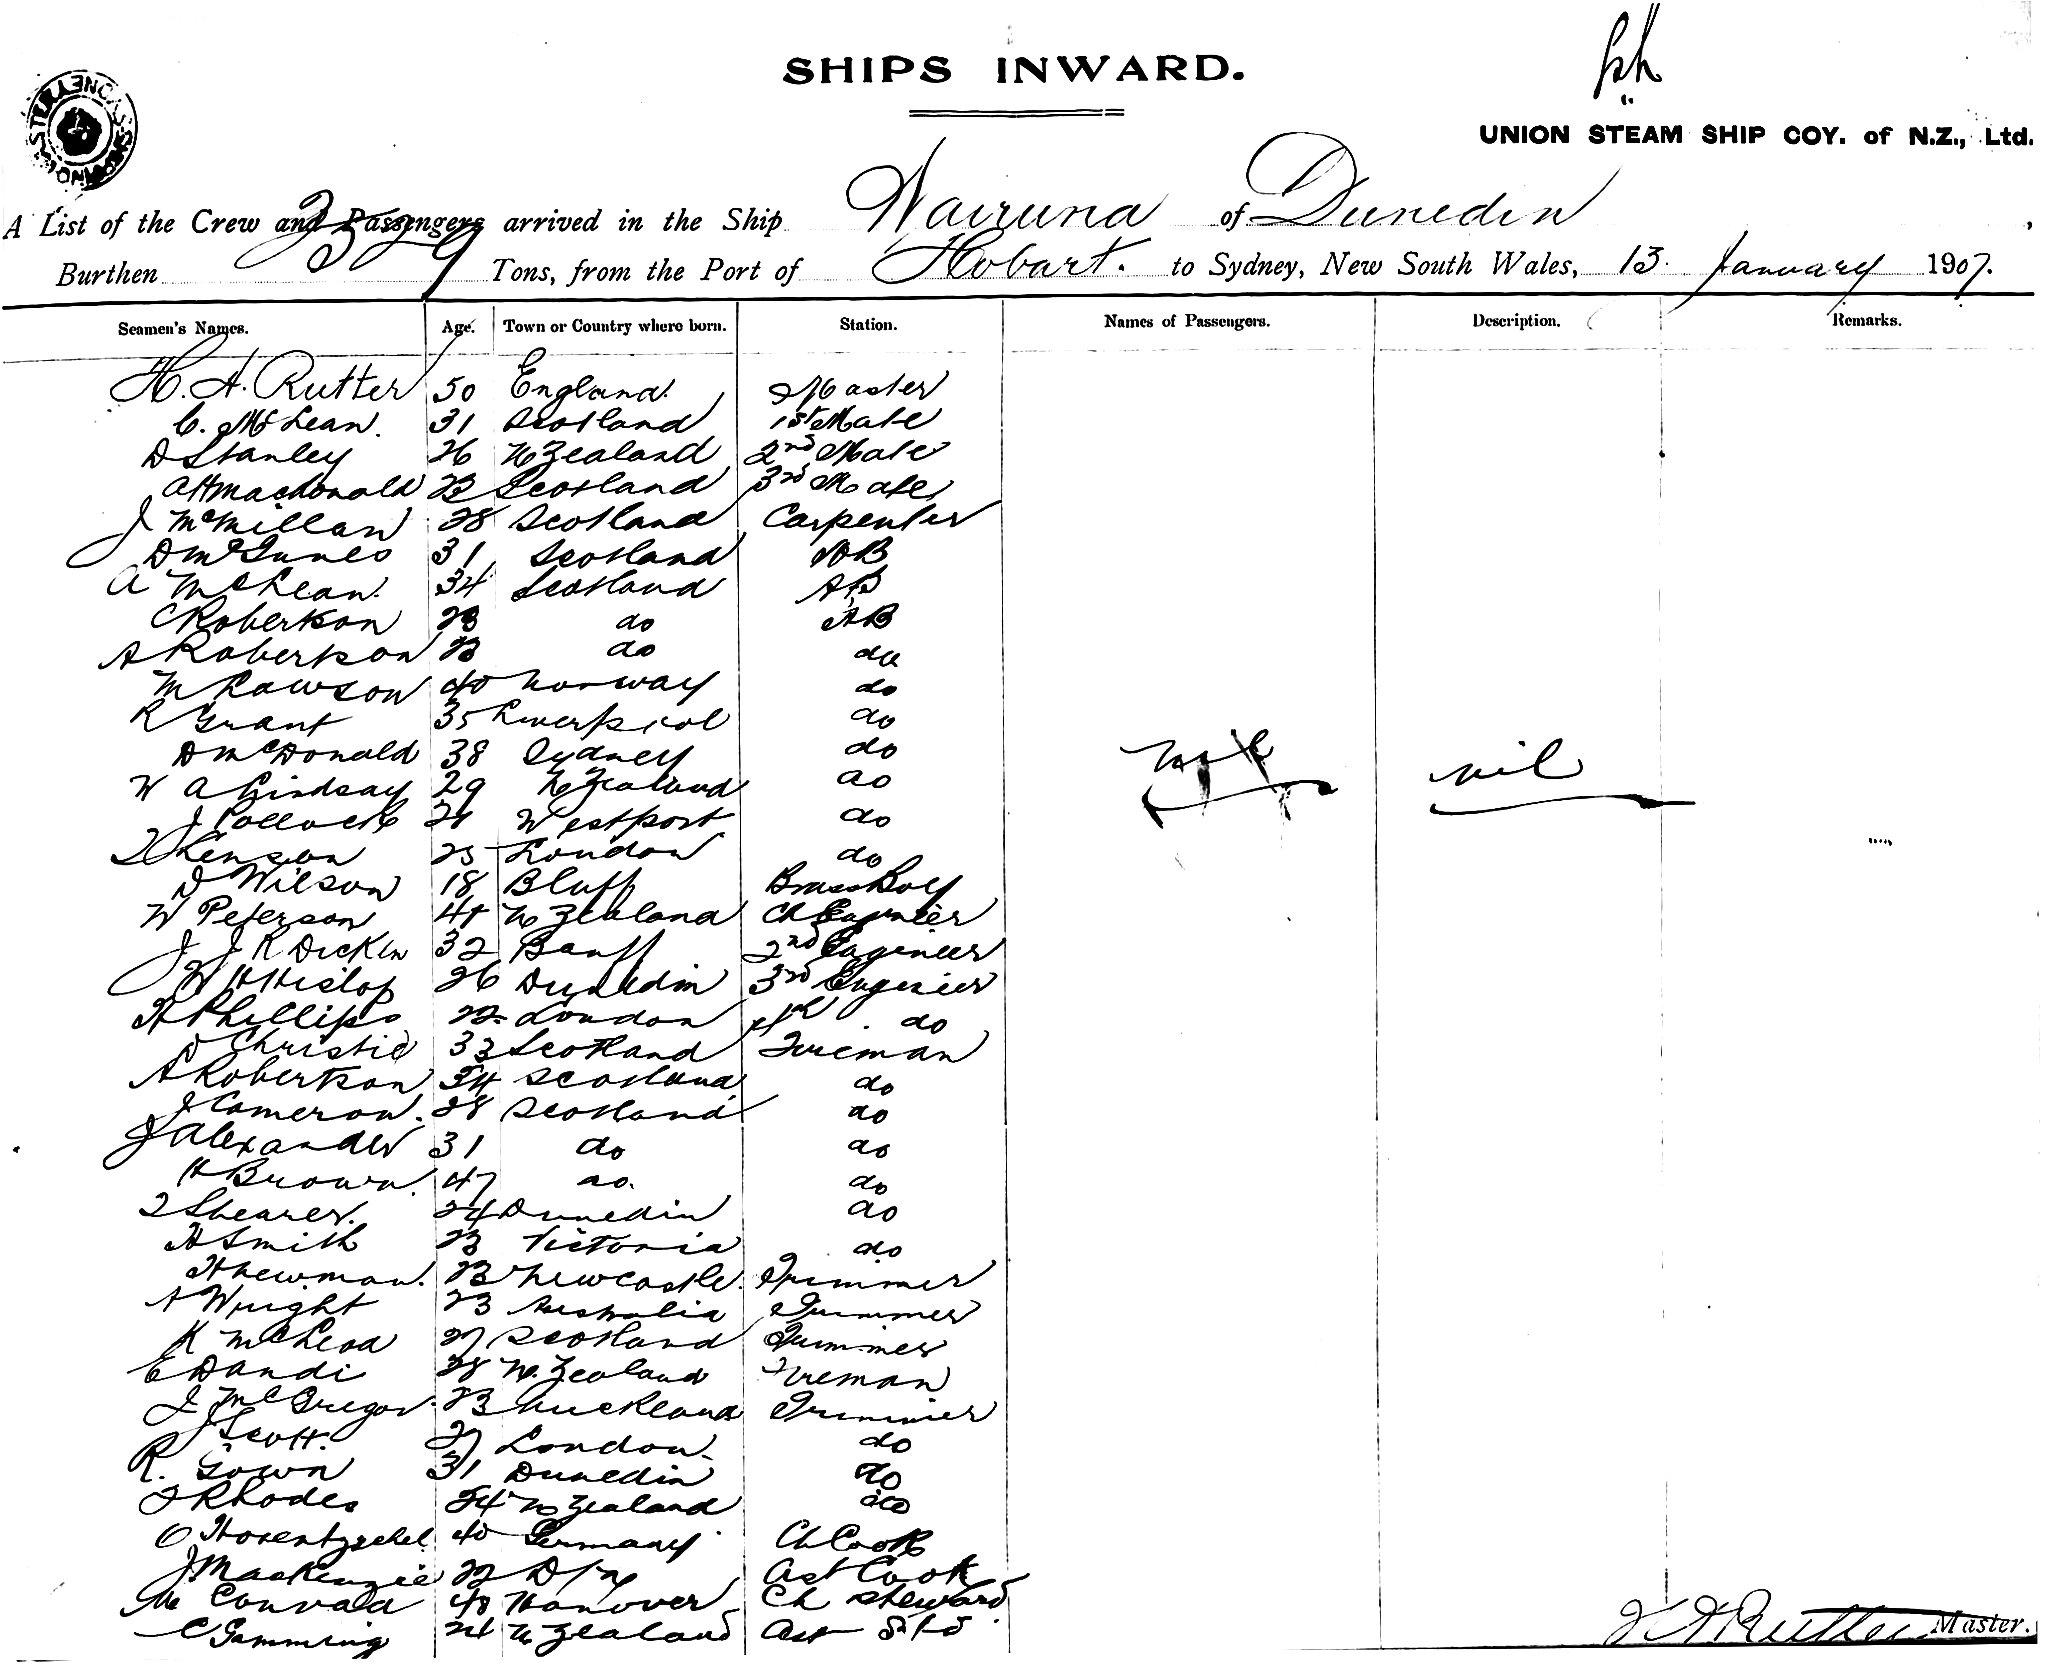 SHIPS INWARD.
UNION STEAM SHIP COY. of N.Z., Ltd.
A List of the Crew and Passengers arrived in the Ship Wairuna of Dunedin,
Burthen Tons, from the Port of Hobart. to Sydney, New South Wales, 13 January 1907.
Seamen's Names. Age. Town or Country where born. Station. Names of Passengers. Description. Remarks.
H. A. Rutter 50 England. Master
C. McLean. 31 Scotland 1st Mate
D Stanley 26 N Zealand 2nd Mate
A H Macdonald 23 Scotland 3rd Mate
J McMillan 28 Scotland Carpenter
D McInnes 31 Scotland AB
A McLean. 34 Scotland AB
C Robertson 23 do AB
A Robertson 23 do do
M Lawson 40 Norway do
R Grant 35 Liverpool do
D McDonald 38 Sydney do
nil nil
W A Lindsay 29 N Zealand do
J Pollock 21 Westport do
London do
J Wilson 18 Bluff Brass Boy
W Peterson 41 N Zealand Ch Engineer
J J R Dicken 32 Banff 2nd Engineer
W H Hislop 26 Dunedin 3rd Engineer
H Phillips 22 London 4th do
J Christie 33 Scotland Fireman
A Robertson 34 Scotland do
J Cameron. 28 Scotland do
J Alexander 31 do do
H Brown. 47 do. do
J Shearer. 24 Dunedin do
H Smith 23 Victoria do
H Newman. 23 Newcastle. Trimmer
A Wright 23 Australia Trimmer
K McLeod 27 Scotland Trimmer
E Dandi 28 N. Zealand Fireman
J McGregor 23 Auckland Trimmer
J Scott. 27 London. do
R. Gown 31 Dunedin do
J Rhodes 24 N Zealand do
O 40 Germany Ch Cook
J Mackenzie 22 Ast Cook
M Conrad 40 Hanover Ch Steward
C Gamming 21 N Zealand Ast Std
H A Rutter Master.